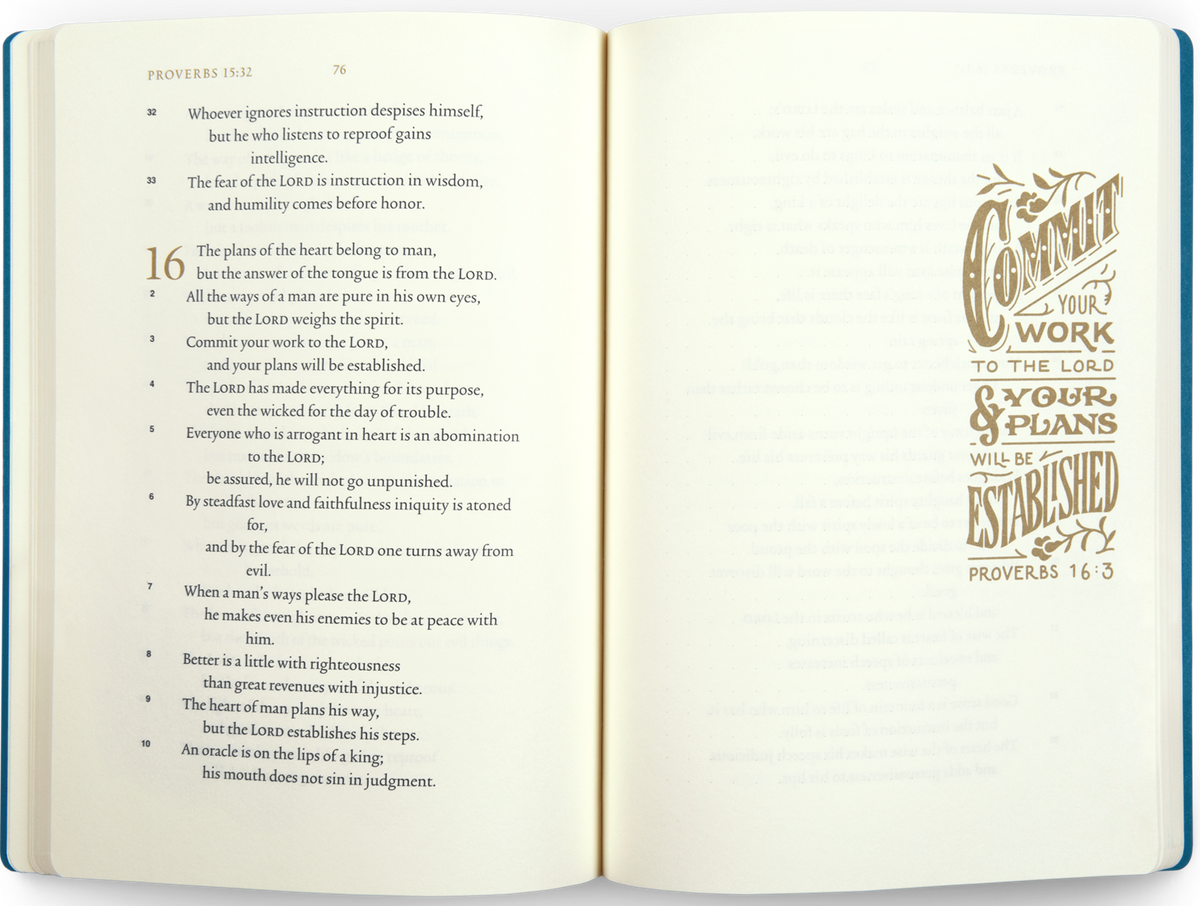 PROVERBS 15:32 76
32 Whoever ignores instruction despises himself,
but he who listens to reproof gains
intelligence.
33 The fear of the LORD is instruction in wisdom,
and humility comes before honor.
16 The plans of the heart belong to man,
but the answer of the tongue is from the LORD.
2 All the ways of a man are pure in his own eyes,
but the LORD weighs the spirit.
3 Commit your work to the LORD,
and your plans will be established.
4 The LORD has made everything for its purpose,
even the wicked for the day of trouble.
5 Everyone who is arrogant in heart is an abomination
to the LORD;
be assured, he will not go unpunished.
6 By steadfast love and faithfulness iniquity is atoned
for,
and by the fear of the LORD one turns away from
evil.
7 When a man’s ways please the LORD,
he makes even his enemies to be at peace with
him.
8 Better is a little with righteousness
than great revenues with injustice.
9 The heart of man plans his way,
but the LORD establishes his steps.
10 An oracle is on the lips of a king;
his mouth does not sin in judgment.
COMMIT
YOUR
WORK
TO THE LORD
& YOUR
PLANS
WILL BE
ESTABLISHED
PROVERBS 16:3